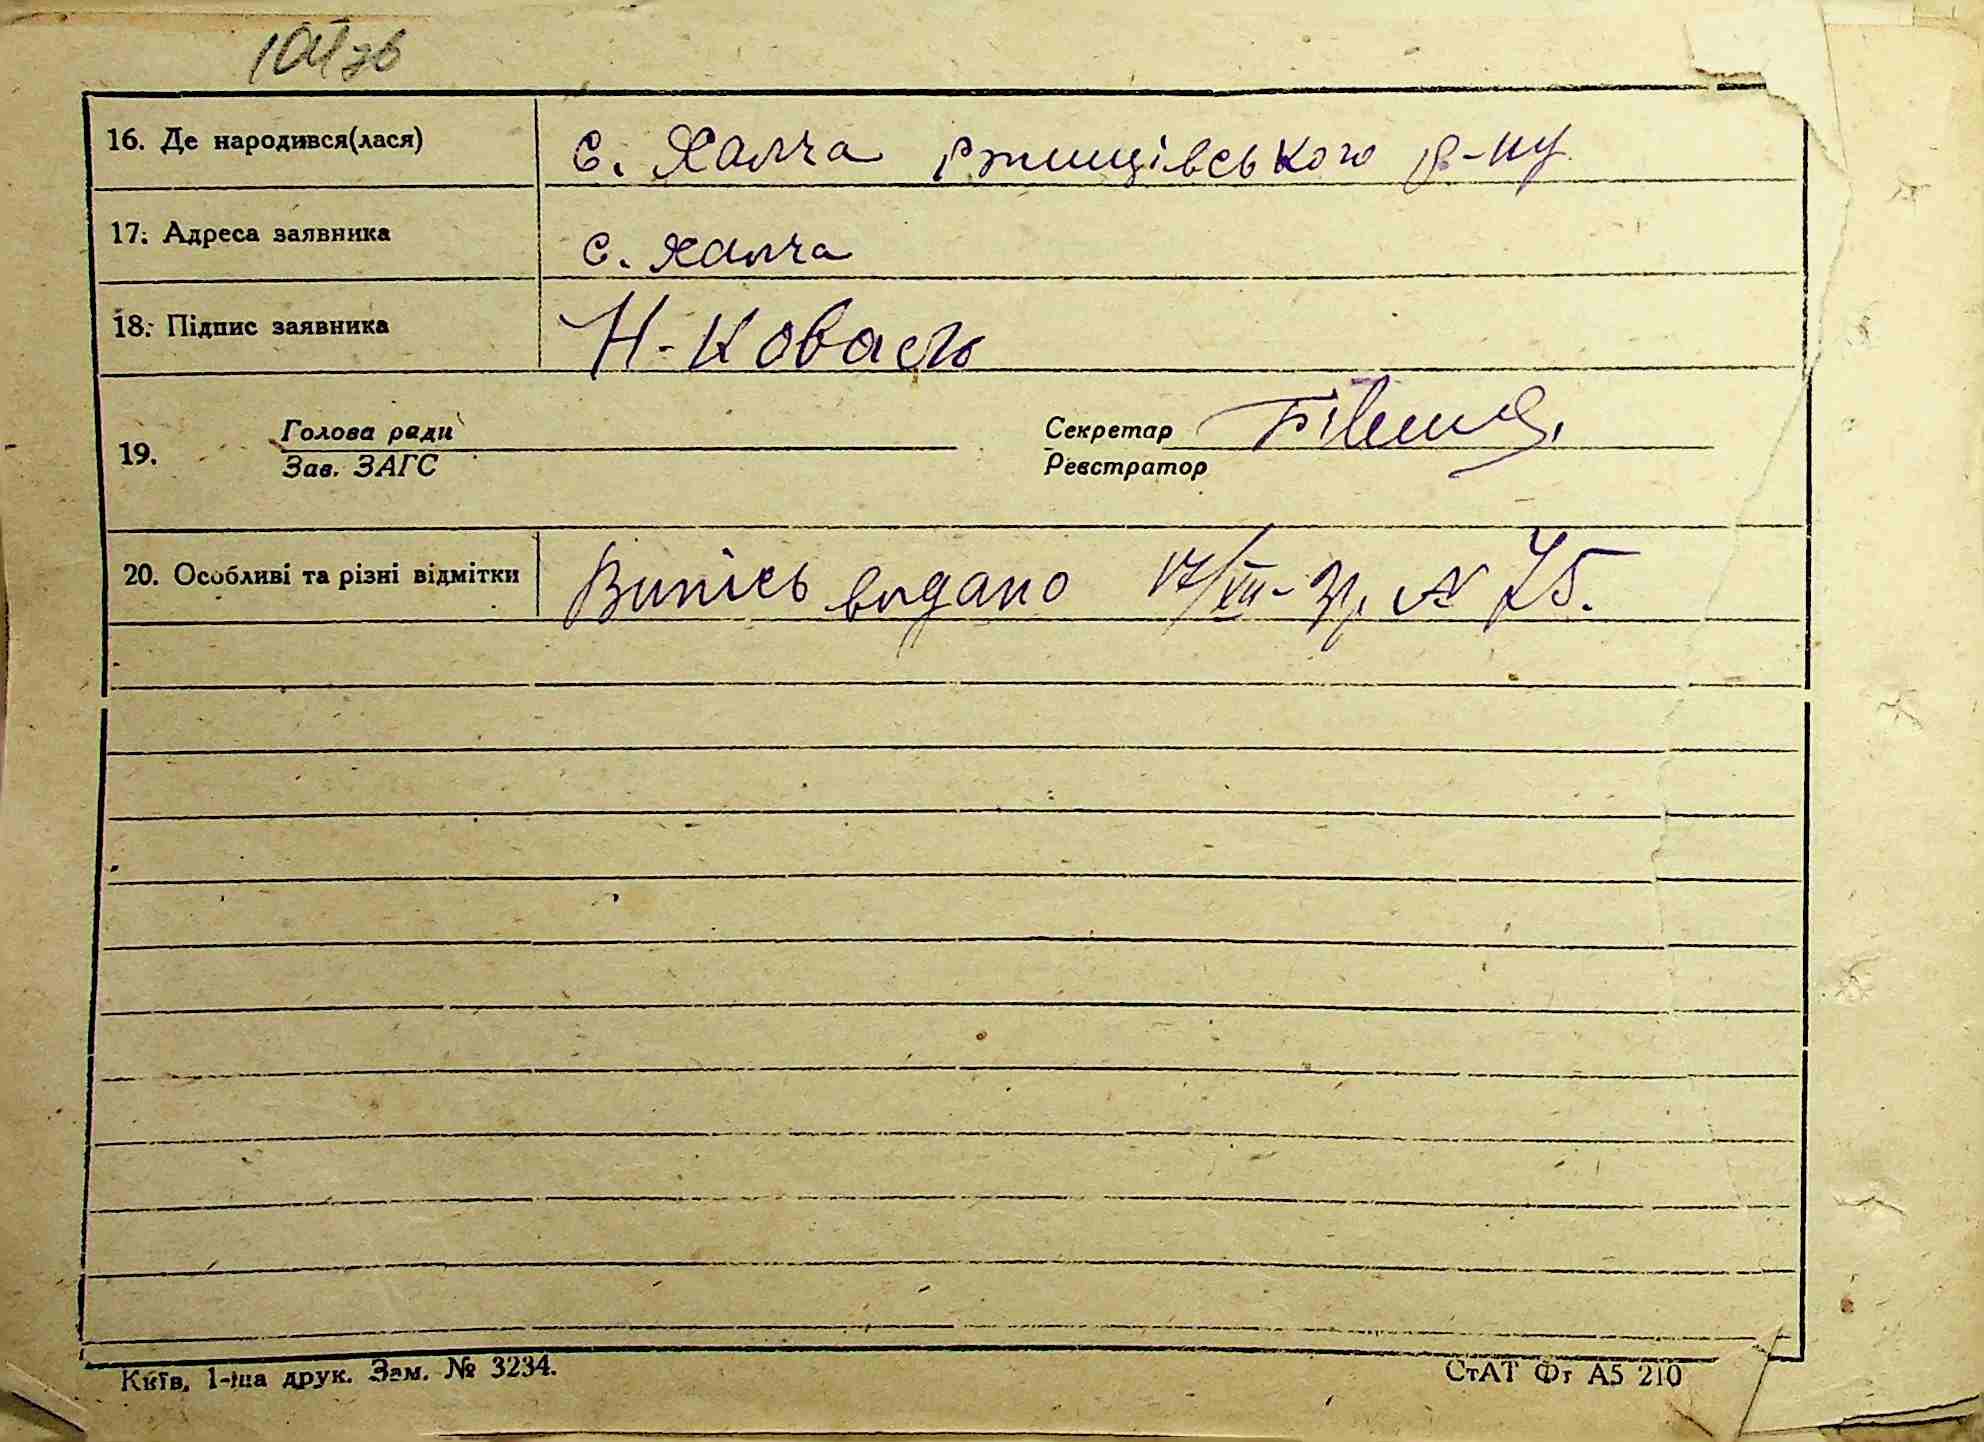 104зв
16. Де народився(лася) с. Халча Ржищівського р-ну
17. Адреса заявника с. Халча
18. Підпис заявника Н-Коваль
Голова ради Секретар
19.
Зав. ЗАГС Реєстратор
20. Особливі та різні відмітки Випісь видано 17/XII- № 75.
Київ, 1-ша друк. Зам. № 3234. СтАТ Фт А5 210